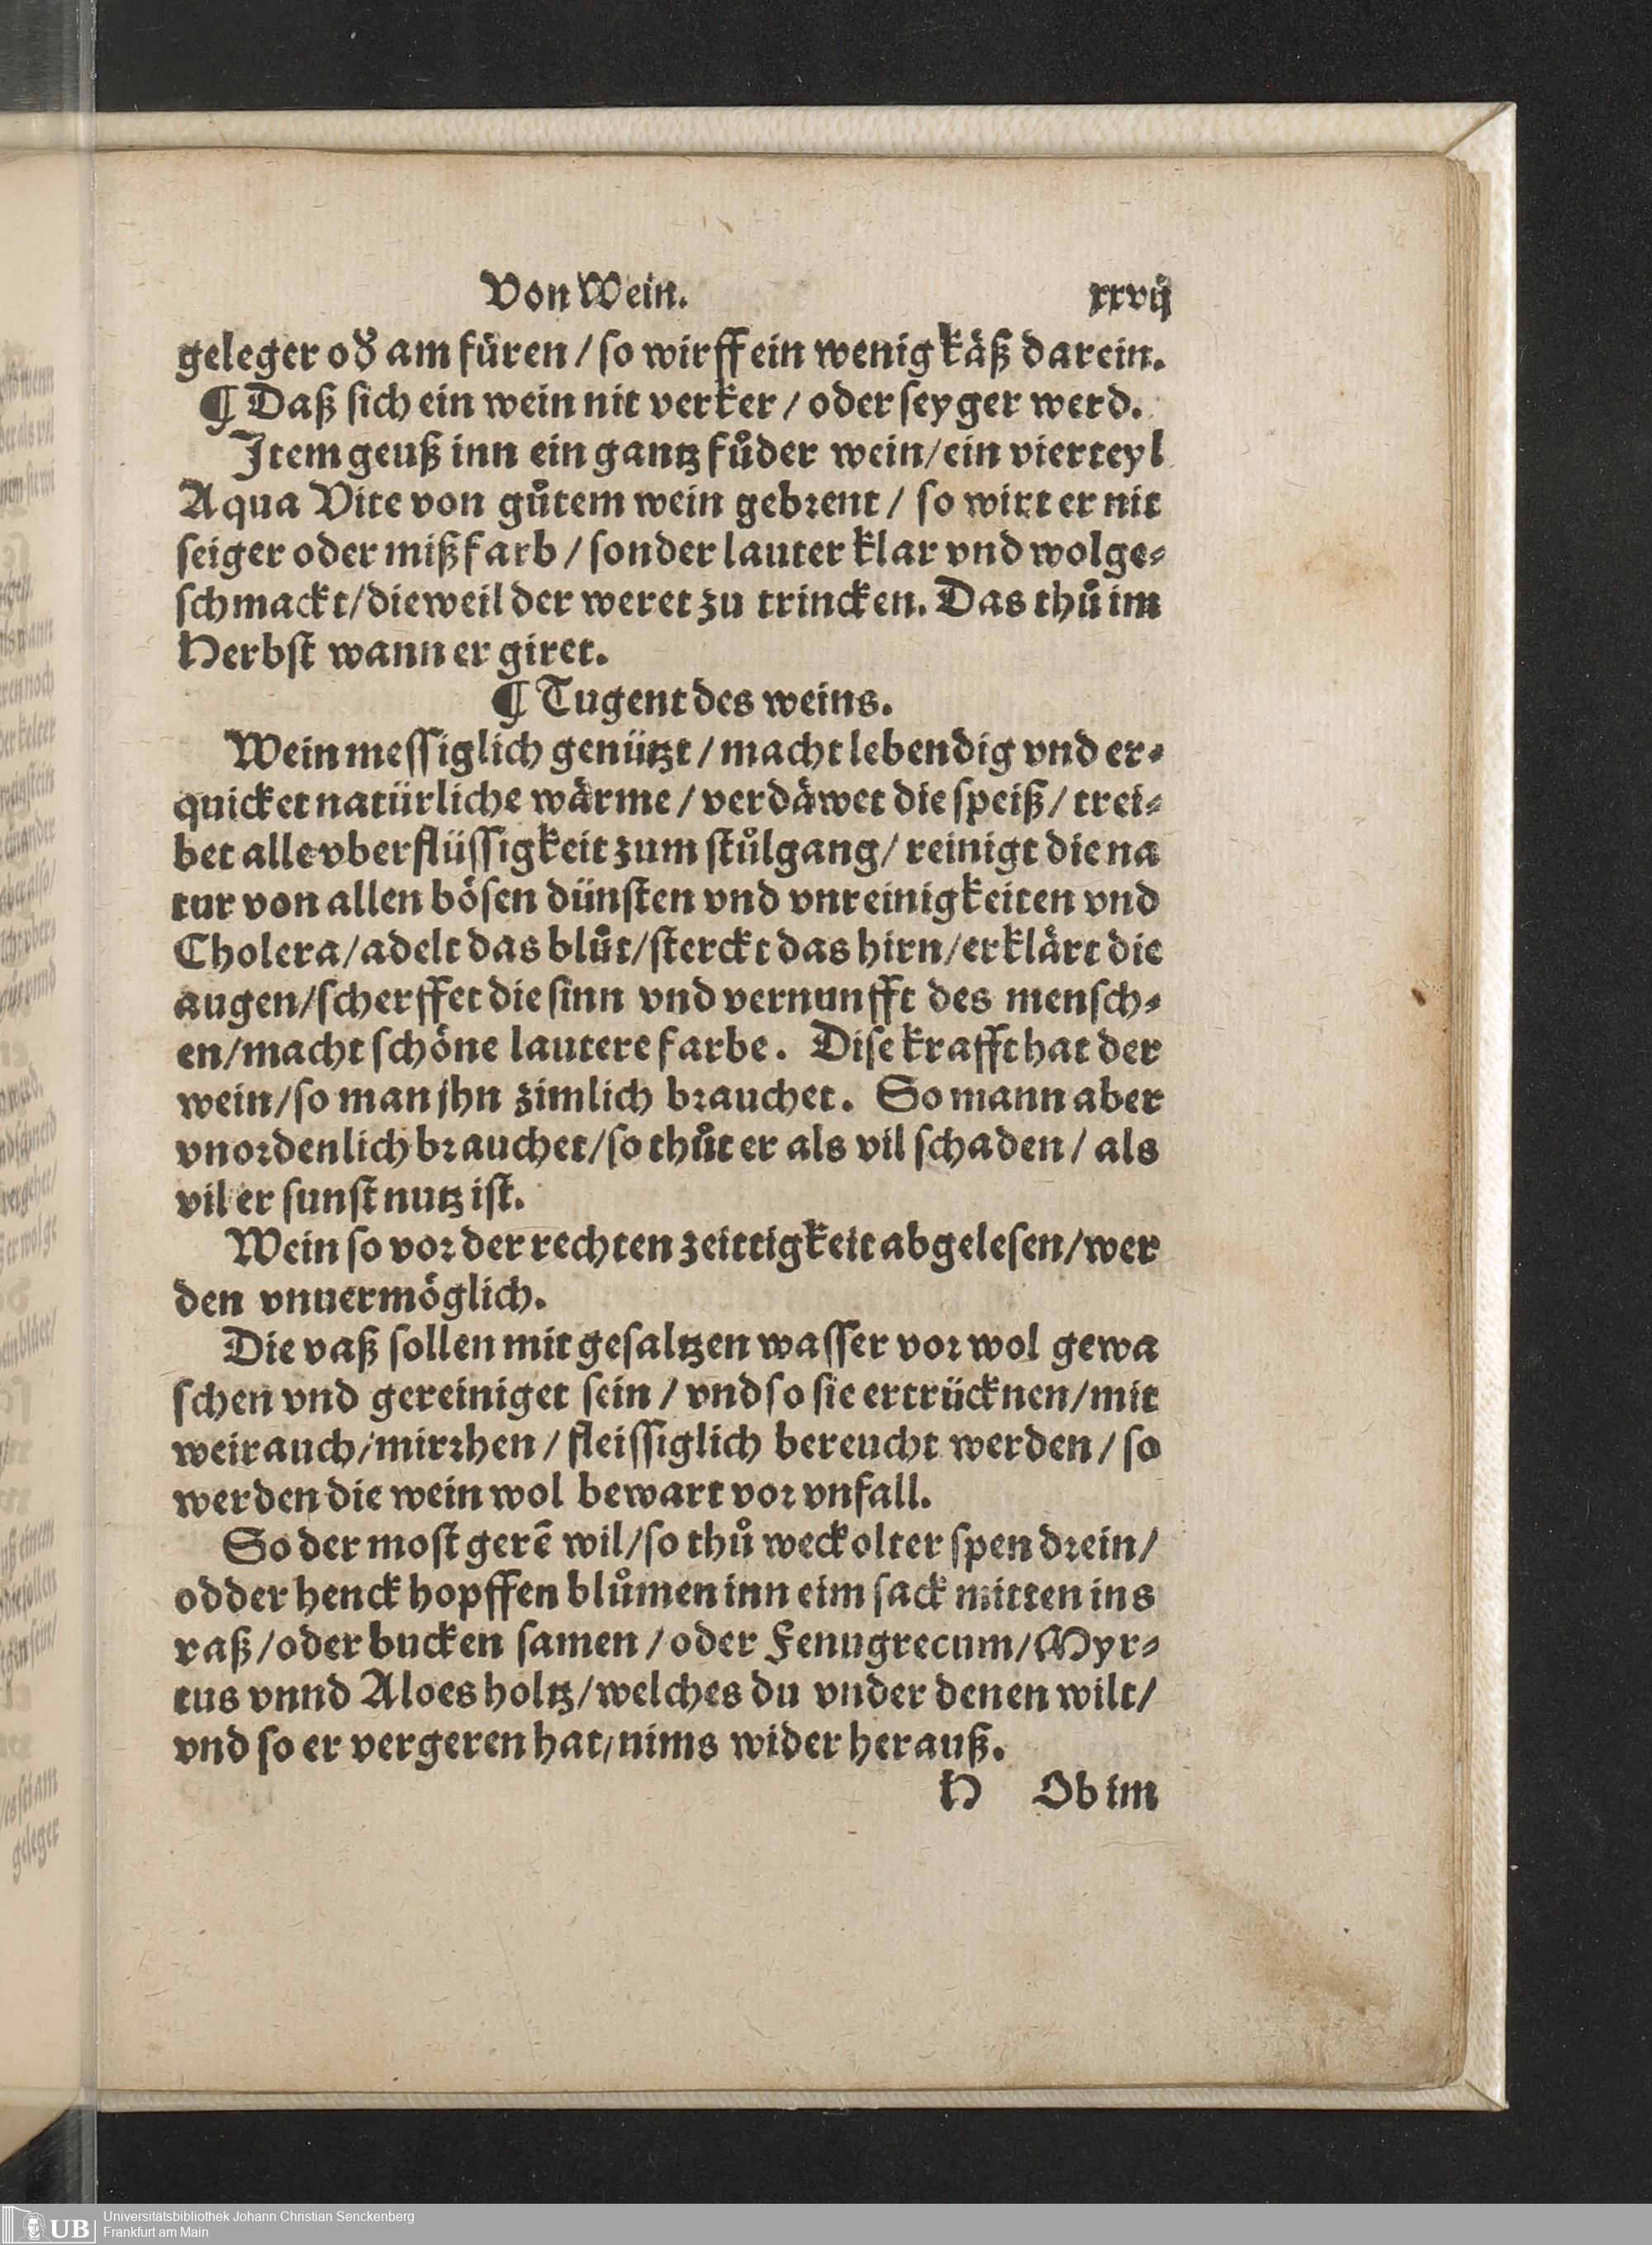 Von Wein. xxvij
geleger oď am füren / so wirff ein wenig käß darein.
¶ Daß sich ein wein nit verker / oder seyger werd.
Item geuß inn ein gantz fůder wein / ein vierteyl
Aqua Vite von gůtem wein gebrent / so wirt er nit
seiger oder mißfarb / sonder lauter klar vnd wolge⸗
schmackt / dieweil der weret zu trincken. Das thů im
Herbst wann er giret.
¶ Tugent des weins.
Wein messiglich genützt / macht lebendig vnd er⸗
quicket natürliche wärme / verdäwet die speiß / trei⸗
bet alle vberflüssigkeit zum stůlgang / reinigt die na
tur von allen bösen dünsten vnd vnreinigkeiten vnd
Cholera / adelt das blůt / sterckt das hirn / erklärt die
augen / scherffet die sinn vnd vernunfft des mensch⸗
en / macht schöne lautere farbe. Dise krafft hat der
wein / so man jhn zimlich brauchet. So mann aber
vnordenlich brauchet / so thůt er als vil schaden / als
vil er sunst nutz ist.
Wein so vor der rechten zeittigkeit abgelesen / wer
den vnuermöglich.
Die vaß sollen mit gesaltzen wasser vor wol gewa
schen vnd gereiniget sein / vnd so sie ertrücknen / mit
weirauch / mirrhen / fleissiglich bereucht werden / so
werden die wein wol bewart vor vnfall.
So der most gerẽ wil / so thů weckolter spen drein /
odder henck hopffen blůmen inn eim sack mitten ins
raß / oder bucken samen / oder Fenugrecum / Myr⸗
tus vnnd Aloes holtz / welches du vnder denen wilt /
vnd so er vergeren hat / nims wider herauß.
H Ob im
geleger
UB Universitätsbibliothek Johann Christian Senckenberg
Frankfurt am Main